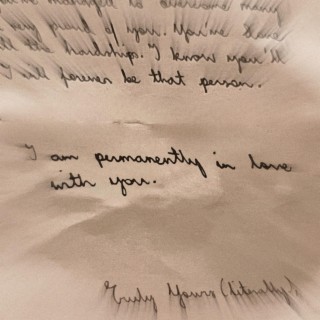 managed to overcome many
proud of you. You've done
all the hardships. I know you'll
I will forever be that person.
I am permanently in love
with you.
Truly Yours (literally)